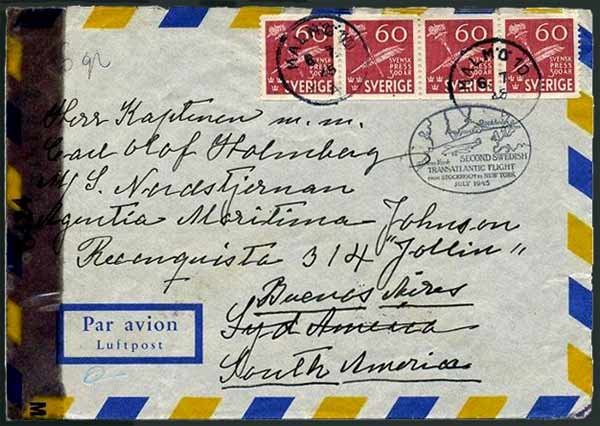 60 60 60 60
SVENSK PRESS 300 ÅR SVENSK PRESS 300 ÅR
SVERIGE SVERIGE SVERIGE SVERIGE
MALMÖ 10 MALMÖ 10
6 gr
Herr Kaptenen m.m.
Carl Olof Holmberg
M/S Nordstjernan
Agentia Maritima Johnson
Reconquista 314 "Jollin"
Buenos Aires
Syd America
South America
SECOND SWEDISH
TRANSATLANTIC FLIGHT
FROM STOCKHOLM TO NEW YORK
JULY 1945
Par avion
Luftpost
M